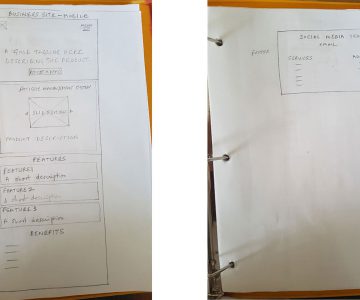 BUSINESS SITE - MOBILE
MENU
A GOOD TAGLINE HERE
DESCRIBING THE PRODUCT
SLIDESHOW
PRODUCT DESCRIPTION
FEATURES
FEATURE 1
A short description
FEATURE 2
A short description
FEATURE 3
A short description
BENEFITS
SOCIAL MEDIA
EMAIL
FOOTER
SERVICES